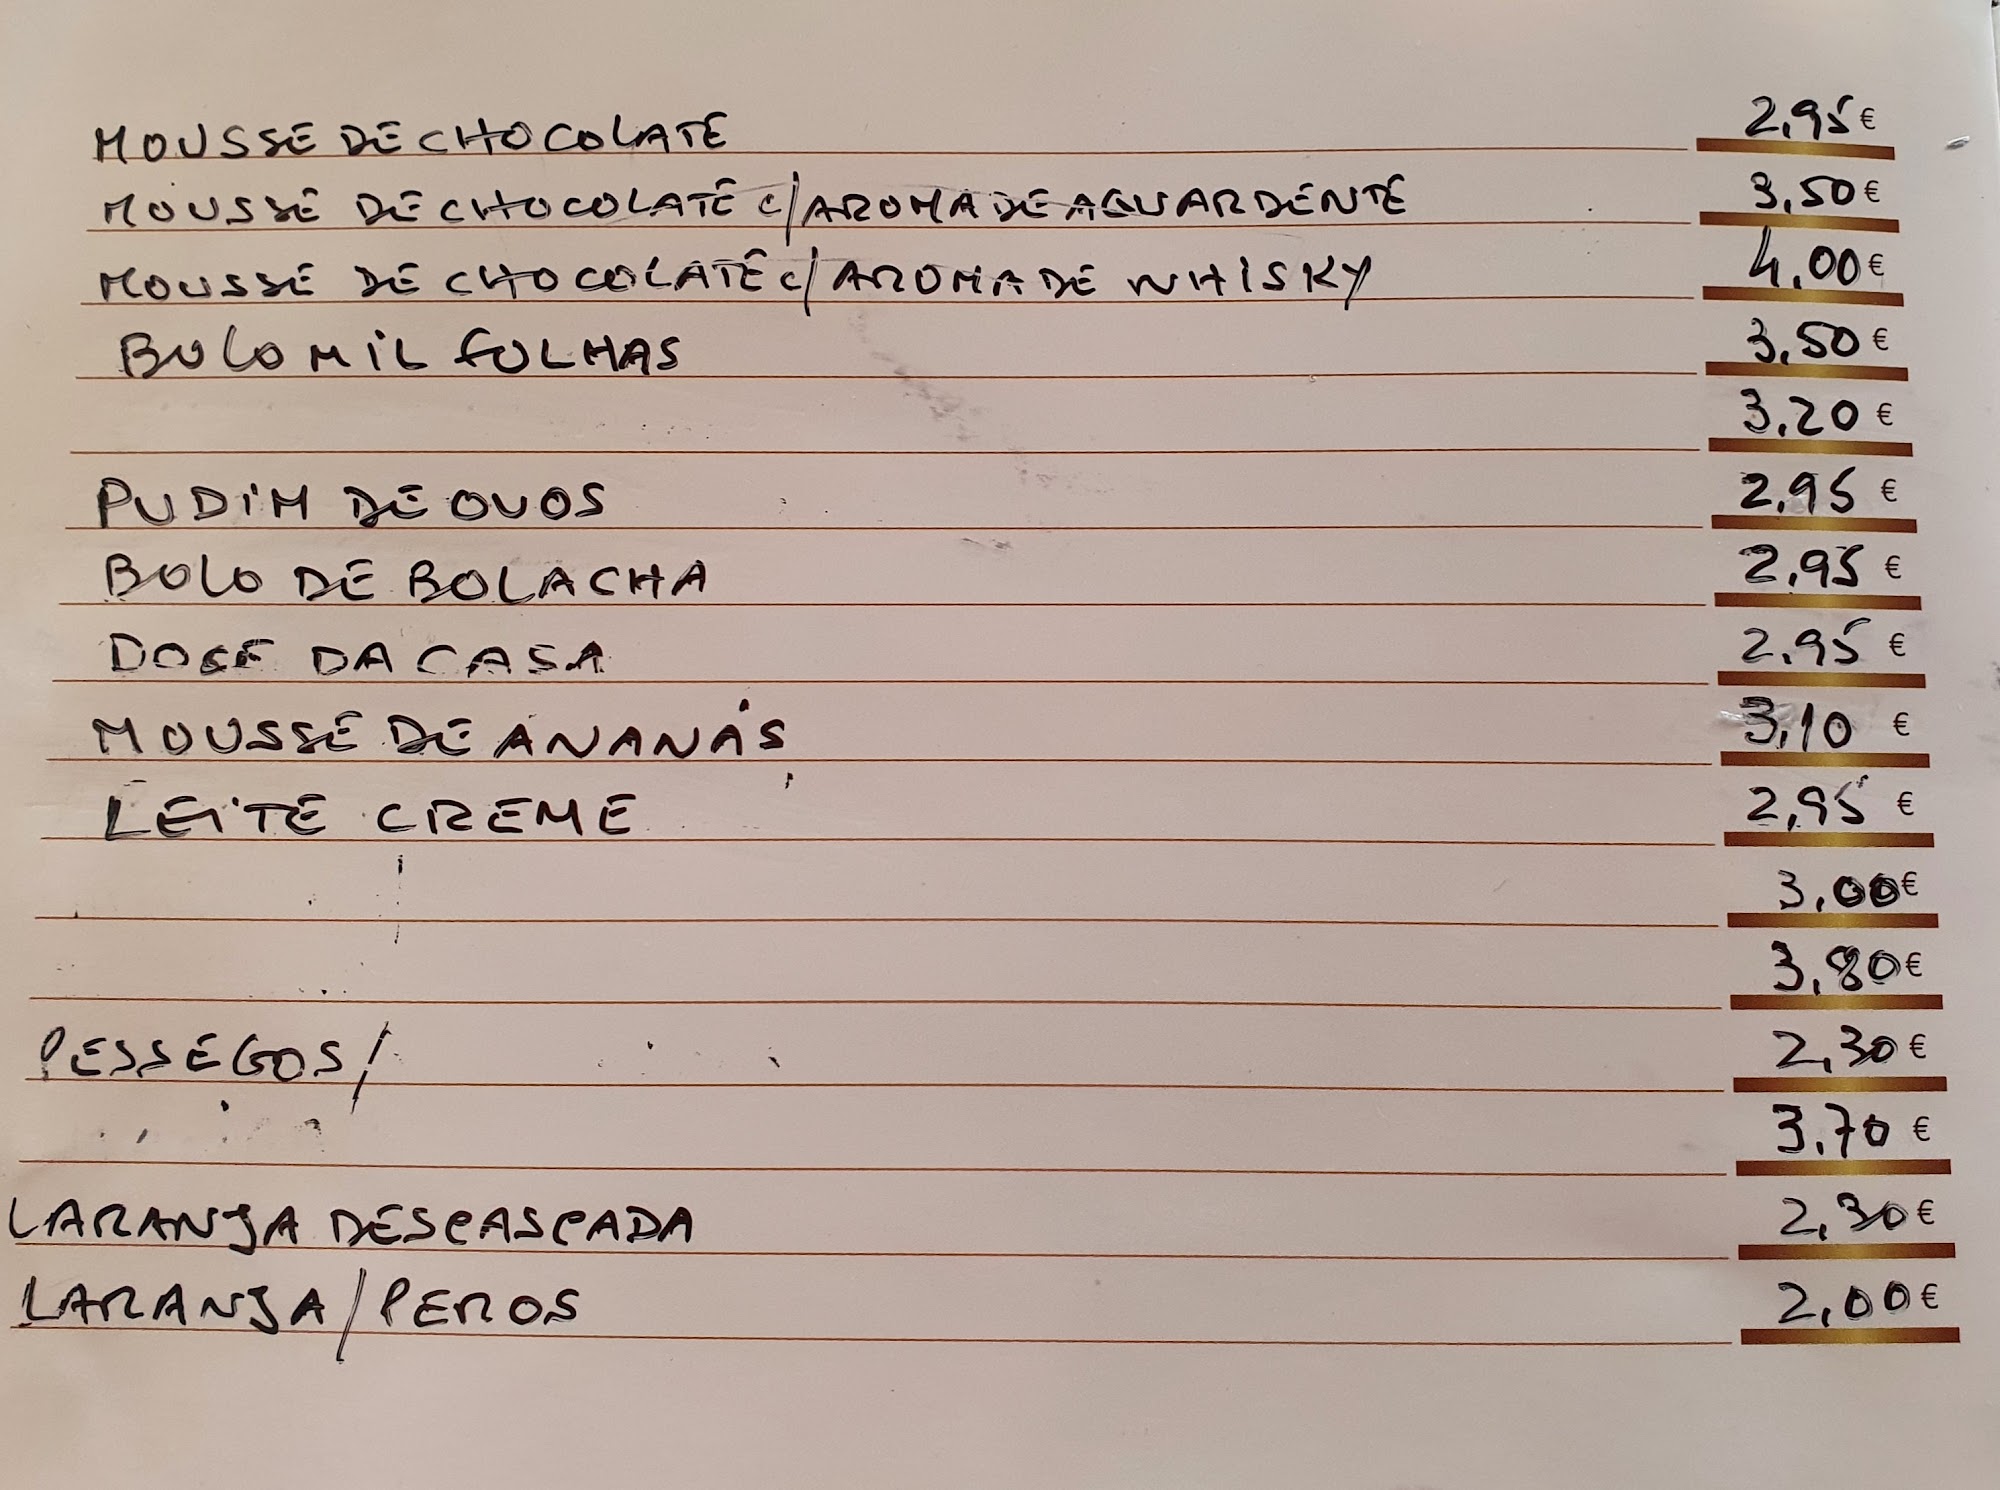 MOUSSE DE CHOCOLATE 2,95€
MOUSSE DE CHOCOLATE C/AROMA DE AGUARDENTE 3,50€
MOUSSE DE CHOCOLATE C/AROMA DE WHISKY 4,00€
BOLO MIL FOLHAS 3,50€
3,20€
PUDIM DE OVOS 2,95€
BOLO DE BOLACHA 2,95€
DOCE DA CASA 2,95€
MOUSSE DE ANANÁS 3,10€
LEITE CREME 2,95€
3,00€
3,80€
PESSEGOS/ 2,30€
3,70€
LARANJA DESCASCADA 2,30€
LARANJA/PEROS 2,00€